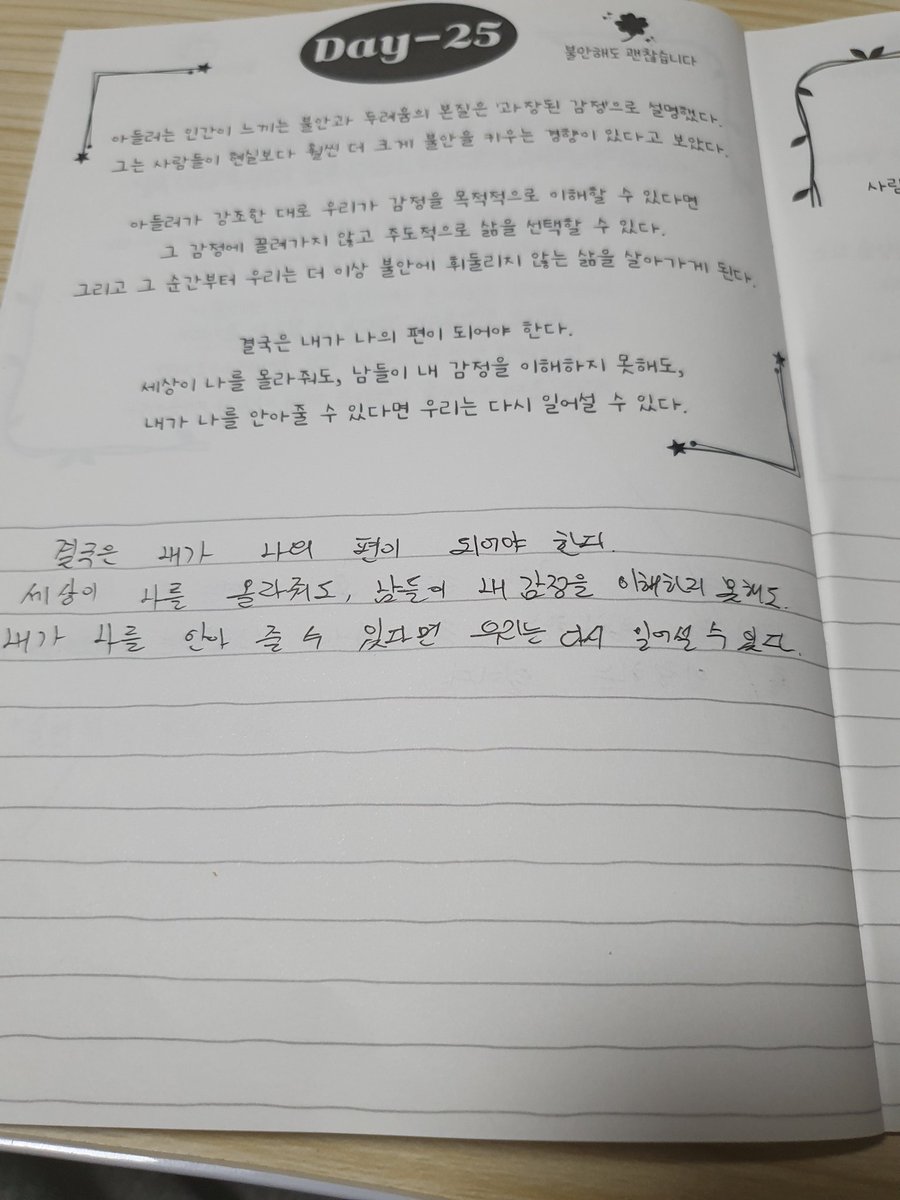 Day-25
불안해도 괜찮습니다
아들러는 인간이 느끼는 불안과 두려움의 본질은 '과장된 감정'으로 설명했다.
그는 사람들이 현실보다 훨씬 더 크게 불안을 키우는 경향이 있다고 보았다.
아들러가 강조한 대로 우리가 감정을 목적적으로 이해할 수 있다면
그 감정에 끌려가지 않고 주도적으로 삶을 선택할 수 있다.
그리고 그 순간부터 우리는 더 이상 불안에 휘둘리지 않는 삶을 살아가게 된다.
결국은 내가 나의 편이 되어야 한다.
세상이 나를 몰라줘도, 남들이 내 감정을 이해하지 못해도,
내가 나를 안아줄 수 있다면 우리는 다시 일어설 수 있다.
결국은 내가 나의 편이 되어야 한다.
세상이 나를 몰라줘도, 남들이 내 감정을 이해하지 못해도.
내가 나를 안아 줄 수 있다면 우리는 다시 일어설 수 있다.
사람